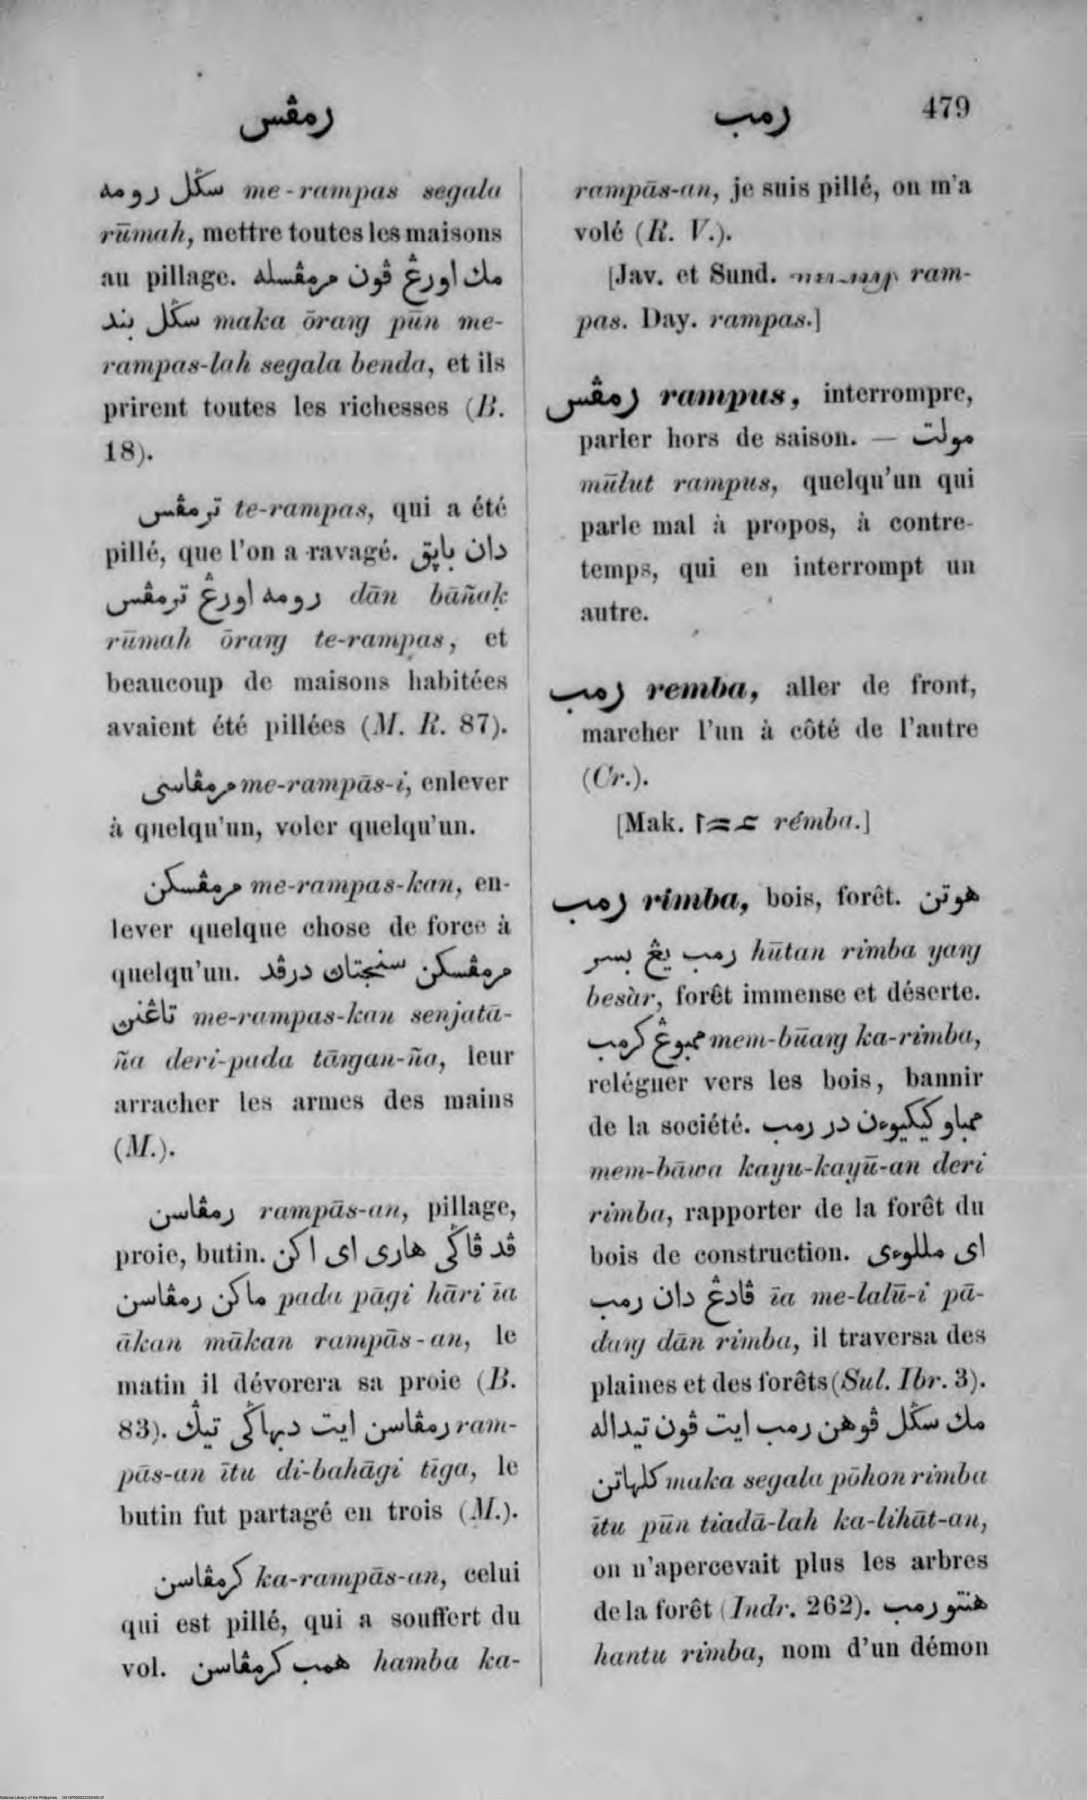 رمڤس
رمب
479
سڬل رومه me-rampas segala
rūmah, mettre toutes les maisons
au pillage. مك اورڠ ڤون مرمڤسله
سڬل بند maka ōrang pūn me-
rampas-lah segala benda, et ils
prirent toutes les richesses (B.
18).
ترمڤس te-rampas, qui a été
pillé, que l'on a ravagé. دان باڽق
رومه اورڠ ترمڤس dān bāñaḳ
rūmah ōrang te-rampas, et
beaucoup de maisons habitées
avaient été pillées (M. R. 87).
مرمڤاسي me-rampās-i, enlever
à quelqu'un, voler quelqu'un.
مرمڤسكن me-rampas-kan, en-
lever quelque chose de force à
quelqu'un. مرمڤسكن سنجتاڽ درڤد
تاڠنڽ me-rampas-kan senjatā-
ña deri-pada tāngan-ña, leur
arracher les armes des mains
(M.).
رمڤاسن rampās-an, pillage,
proie, butin. ڤد ڤاڬي هاري اي اكن
ماكن رمڤاسن pada pāgi hāri īa
ākan mākan rampās-an, le
matin il dévorera sa proie (B.
83). رمڤاسن ايت دبهاڬي تيڬ ram-
pās-an ītu di-bahāgi tīga, le
butin fut partagé en trois (M.).
كرمڤاسن ka-rampās-an, celui
qui est pillé, qui a souffert du
vol. همب كرمڤاسن hamba ka-
rampās-an, je suis pillé, on m'a
volé (R. V.).
[Jav. et Sund. ram-
pas. Day. rampas.]
رمڤس rampus, interrompre,
parler hors de saison. — مولت
mūlut rampus, quelqu'un qui
parle mal à propos, à contre-
temps, qui en interrompt un
autre.
رمب remba, aller de front,
marcher l'un à côté de l'autre
(Cr.).
[Mak. rémba.]
رمب rimba, bois, forêt. هوتن
رمب يڠ بسر hūtan rimba yang
besàr, forêt immense et déserte.
ممبوڠ كرمب mem-būang ka-rimba,
reléguer vers les bois, bannir
de la société. ممباو كيكيوءن در رمب
mem-bāwa kayu-kayū-an deri
rimba, rapporter de la forêt du
bois de construction. اي مللوءي
ڤادڠ دان رمب īa me-lalū-i pā-
dang dān rimba, il traversa des
plaines et des forêts (Sul. Ibr. 3).
مك سڬل ڤوهن رمب ايت ڤون تيداله
كلهاتن maka segala pōhon rimba
ītu pūn tiadā-lah ka-lihāt-an,
on n'apercevait plus les arbres
de la forêt (Indr. 262). هنتو رمب
hantu rimba, nom d'un démon